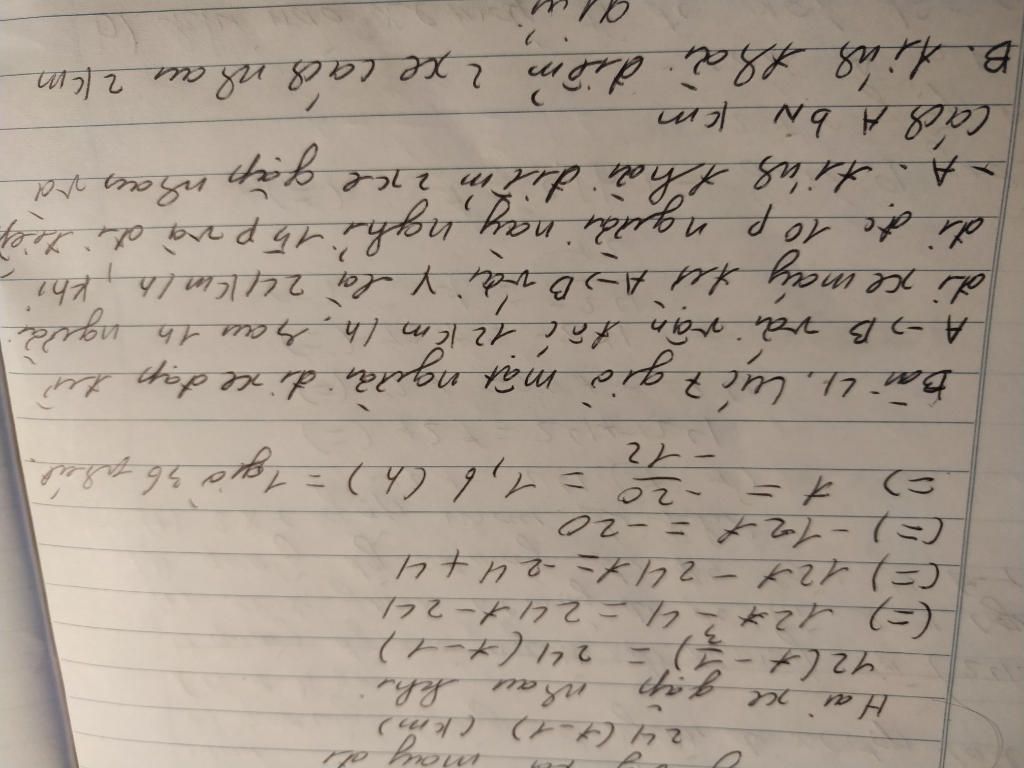 24 (t-1) (km)
Hai xe gặp nhau khi
12 (t - 1/3) = 24 (t-1)
(=) 12t - 4 = 24t - 24
(=) 12t - 24t = -24 + 4
(=) -12t = -20
=) t = -20/-12 = 1,6 (h) = 1 giờ 36 phút
Bài 4. Lúc 7 giờ một người đi xe đạp từ
A → B với vận tốc 12 km/h, sau 1h người
đi xe máy từ A → B với V là 24 km/h, khi
đi đc 10 p người này nghỉ 15 p và đi tiếp
- A. tính thời điểm 2 xe gặp nhau và
cách A bn km
B. tính thời điểm 2 xe cách nhau 2 km